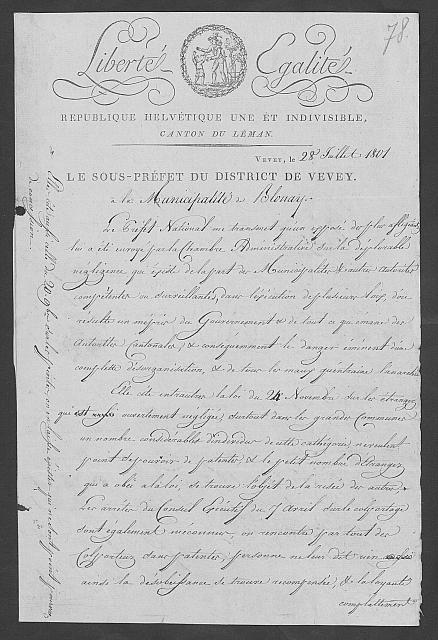 78.
Liberté Egalité
REPUBLIQUE HELVÉTIQUE UNE ET INDIVISIBLE,
CANTON DU LÉMAN.
VEVEY, le 28 Juillet 1801
LE SOUS-PRÉFET DU DISTRICT DE VEVEY.
à la Municipalité de Blonay.
Le Préfet National me transmet qu'un exposé des plus affligeans
lui a été envoyé par la Chambre Administrative sur la déplorable
négligence qui existe de la part des Municipalités & autres Autorités
compétentes ou surveillantes, dans l'éxécution de plusieurs loix, d'où
résulte un mépris du Gouvernement & de tout ce qui émane des
Autorités Cantonales, & conséquemment le danger éminent d'une
complette désorganisation, & de tous les maux qu'entraine l'anarchie
Elle cite entr'autres la loi du 24 Novembre sur les étrangers
qui est ouvertement négligée, surtout dans les grandes Communes
un nombre considérable d'individus de cette cathégorie ne veulent
point se pourvoir de patentes, & le petit nombre d'Etrangers
qui a obéi à la loi, se trouve l'objet de la risée des autres.
Les arrêtés du Conseil Exécutif du 7 Avril sur le colportage
sont également méconnus, on rencontre par tout des
Colporteurs sans patentes, personne ne leur dit rien
ainsi la désobéissance se trouve récompensée, & la loyauté
complettement